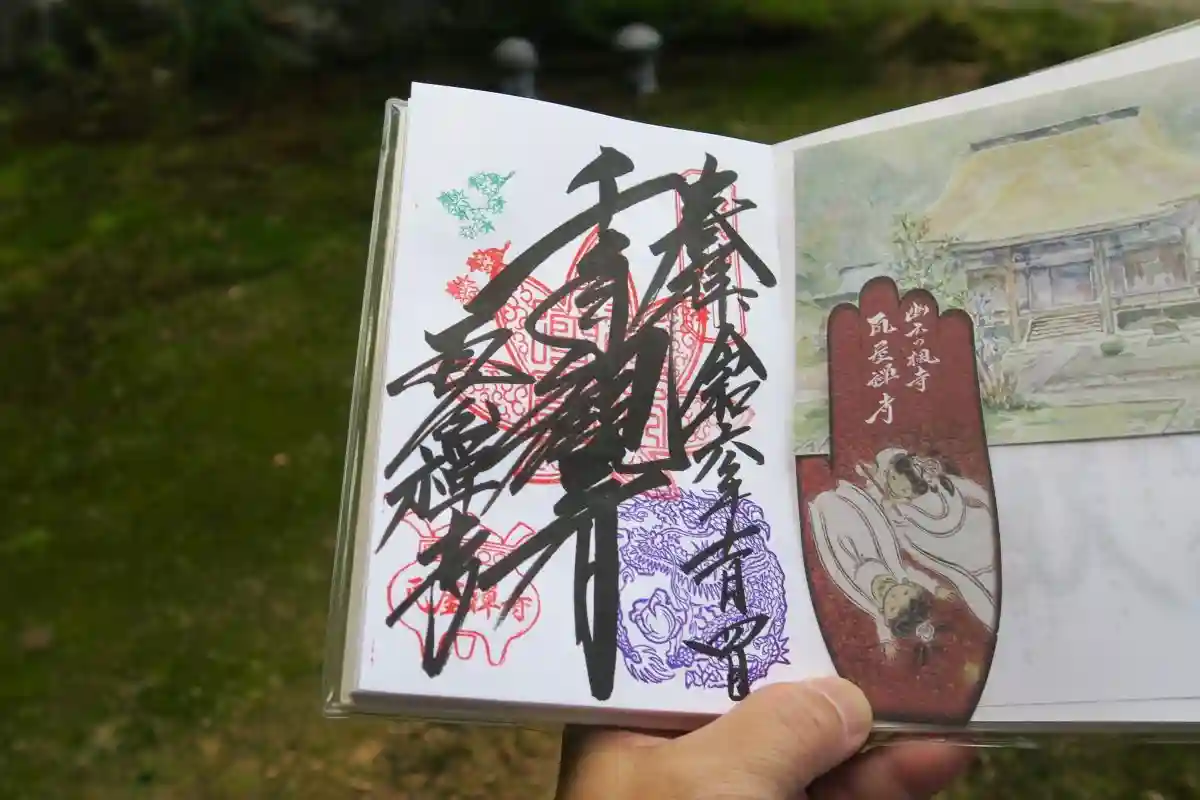 奉拝 令和六年十一月四日
千手観音
瓦屋禅寺
瓦屋禅寺
の楓寺
瓦屋禅寺